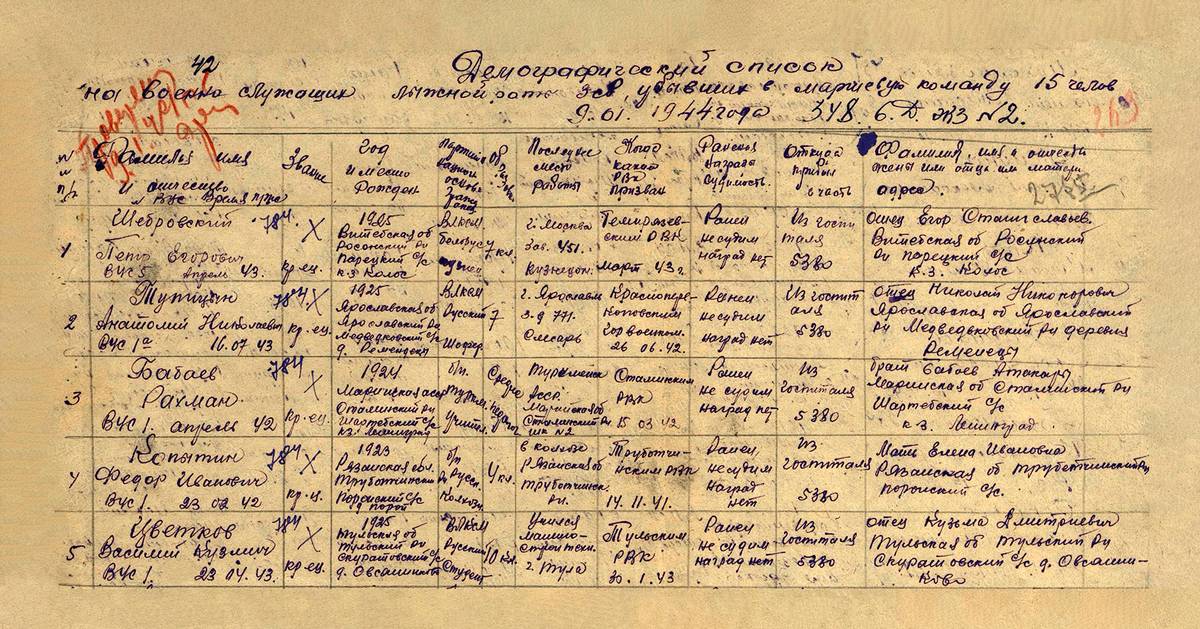 42
Демографический список
на военно служащих лыжной роты зсп, убывших в маршевую команду 15 челов
9.01. 1944 года 348 с.д. экз №2.
263
№ п/п
Фамилия имя
и отчество
Звание
Год
и место
Рожден
Последнее
место
работы
Кого
какого
РВК
призван
Ранения
награда
судимость
Откуда
прибыл
в часть
Фамилия, имя и отчество
жены или отца или матери
адрес
1
Шебровский 784
Петр Егорович
ВУС 5 Апрель 43.
Х
кр.ец.
1925
Витебская об
Росонский Рн
Парецкий С/с
к.з Колос
ВЛКСМ
белорус
7 кл.
г. Москва
Зав. 451.
Кузнецом.
Тимирязев-
ский РВК
март 43 г.
Ранен
несудим
наград нет
Из госпи
таля
5380
отец Егор Станиславов.
Витебская об Росинский
Рн парецкий с/с
к.з. Колос
2
Тупицын 784
Анатолий Николаевич
ВУС 1а 16.07 43
Х
кр.ец.
1925
Ярославская об
Ярославский Рн
Медведковский с/с
д. Ременцы
ВЛКСМ
Русский
Шофер
7
г. Ярославль
з-д 771.
Слесарь
Красопере-
коповский
Горвоенком.
26 06.42.
Ранен
несудим
наград нет
Из госпит
аля
5380
отец Николай Никонорович
Ярославская об Ярославский
Рн Медведковский Рн деревня
Ременцы
3
Бабаев 784
Рахман.
ВУС 1. апрель 42
Х
кр.ец.
1924
Марийская асср
Сталинский Рн
Шартебский С/с
к.з. Ленинград
бп.
туркм.
учитель
Средне
педагог
Туркмена
АССР.
Марийская об
Сталинский Рн.
шк №2
Сталинским
РВК
15 03 42.
Ранен
не судим
наград нет
Из
госпиталя
5380
брат Бабаев Атакары
Марийская об Сталинский Рн
Шартебский С/с
к.з. Ленинград
4
Копытин 784
Федор Иванович
ВУС 1. 23 02 42
Х
кр.ец.
1923
Рязанская обл.
Трубетчинский
Поройский С/с
д порой
бп
Русск.
Колхозн.
4 кл.
в колхозе
Рязанская об
Трубетчинск
Рн.
Трубетчи-
нским РВК
14.11.41.
Ранен
несудим
наград
нет
Из
госпиталя
5380
Мать Елена Ивановна
Рязанская об трубетчинский Рн
поройский с/с.
5
Цветков 784
Василий Кузмич
ВУС 1. 23 04.43.
Х
кр.ец.
1925
Тульская об
Тульский Рн
Скуратовский с/с
д. Овсянниково
ВЛКСМ
Русский
Студент
10 кл.
Учился
Машино-
строит.
г. Тула
Тульским
РВК
30.1.43
Ранен
не судим
наград нет
Из
госпиталя
5380
отец Кузьма Дмитриевич
Тульская об Тульский Рн
Скуратовский с/с д. Овсянни-
ково